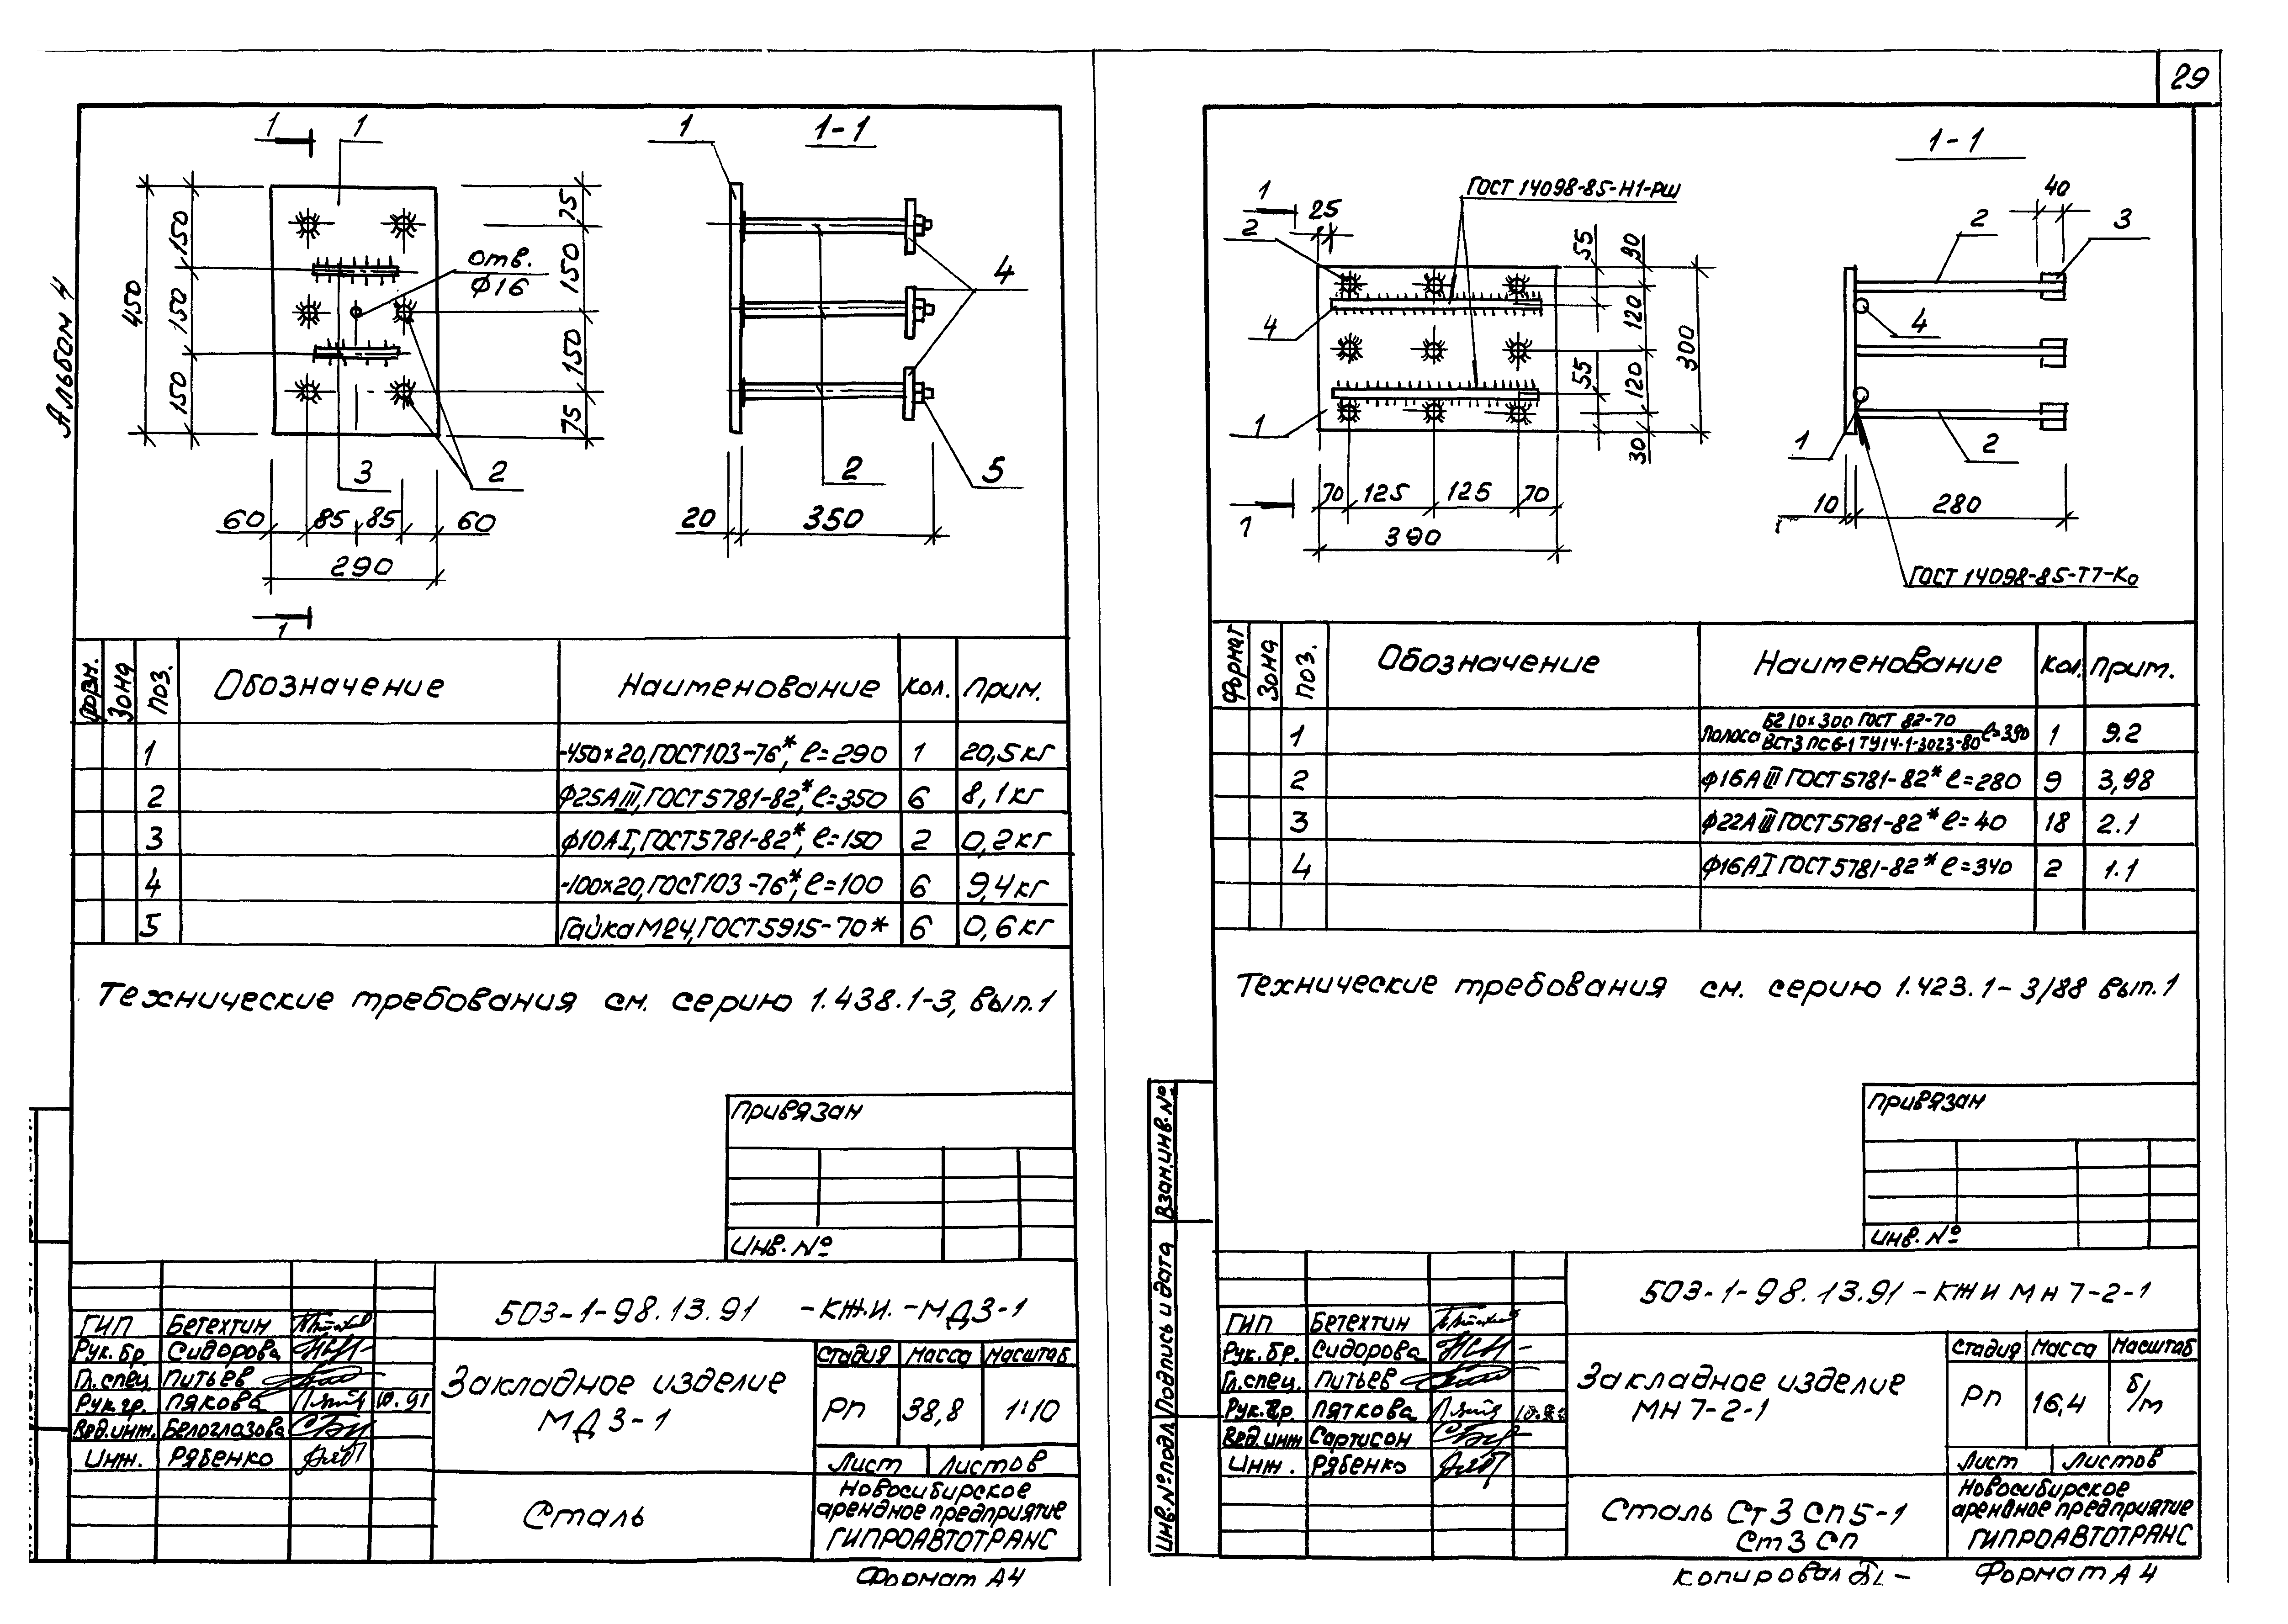 29
Альбом 4
1
1
1-1
1
450
150
150
150
отв.
Ф16
75
150
150
75
3
2
60
85
85
60
290
1
4
2
5
20
350
Зона
Поз.
Обозначение
Наименование
Кол.
Прим.
1
-450×20, ГОСТ103-76*, ℓ=290
1
20,5 кг
2
Ф25АIII, ГОСТ5781-82*, ℓ=350
6
8,1 кг
3
Ф10АI, ГОСТ5781-82*, ℓ=150
2
0,2 кг
4
-100×20, ГОСТ103-76*, ℓ=100
6
9,4 кг
5
Гайка М24, ГОСТ5915-70*
6
0,6 кг
Технические требования см. серию 1.438.1-3, вып.1
Привязан
Инв. №
503-1-98.13.91 -КЖ.И.-МД3-1
ГИП Бетехтин
Рук. бр. Сидорова
Гл. спец. Питьев
Рук. гр. Пякова 10.91
Вед. инж. Белоглазова
Инж. Рябенко
Закладное изделие
МД3-1
Стадия Масса Масштаб
РП 38,8 1:10
Лист Листов
Сталь
Новосибирское
арендное предприятие
ГИПРОАВТОТРАНС
Формат А4
1-1
1
25
2
ГОСТ 14098-85-Н1-РШ
55
30
120
300
55
120
30
4
1
70
125
125
70
390
1
40
2
3
4
1
2
10
280
ГОСТ 14098-85-Т7-Ко
Формат
Зона
Поз.
Обозначение
Наименование
Кол.
Прим.
1
Полоса Б2 10×300 ГОСТ 82-70
ВСТ3 ПС6-1 ТУ14-1-3023-80 ℓ=390
1
9.2
2
Ф16АIII ГОСТ5781-82* ℓ=280
9
3,98
3
Ф22АIII ГОСТ5781-82* ℓ=40
18
2.1
4
Ф16АI ГОСТ5781-82* ℓ=340
2
1.1
Технические требования см. серию 1.423.1-3/88 вып.1
Привязан
Инв. №
Взам.инв.№
Подпись и дата
Инв.№подл.
503-1-98.13.91-КЖИ МН7-2-1
ГИП Бетехтин
Рук. бр. Сидорова
Гл. спец. Питьев
Рук. гр. Пяткова
Вед. инж Сартисон
Инж. Рябенко
Закладное изделие
МН7-2-1
Стадия Масса Масштаб
РП 16,4 б/м
Лист Листов
Сталь Ст3 Сп5-1
Ст3 Сп
Новосибирское
арендное предприятие
ГИПРОАВТОТРАНС
Копировал
Формат А4